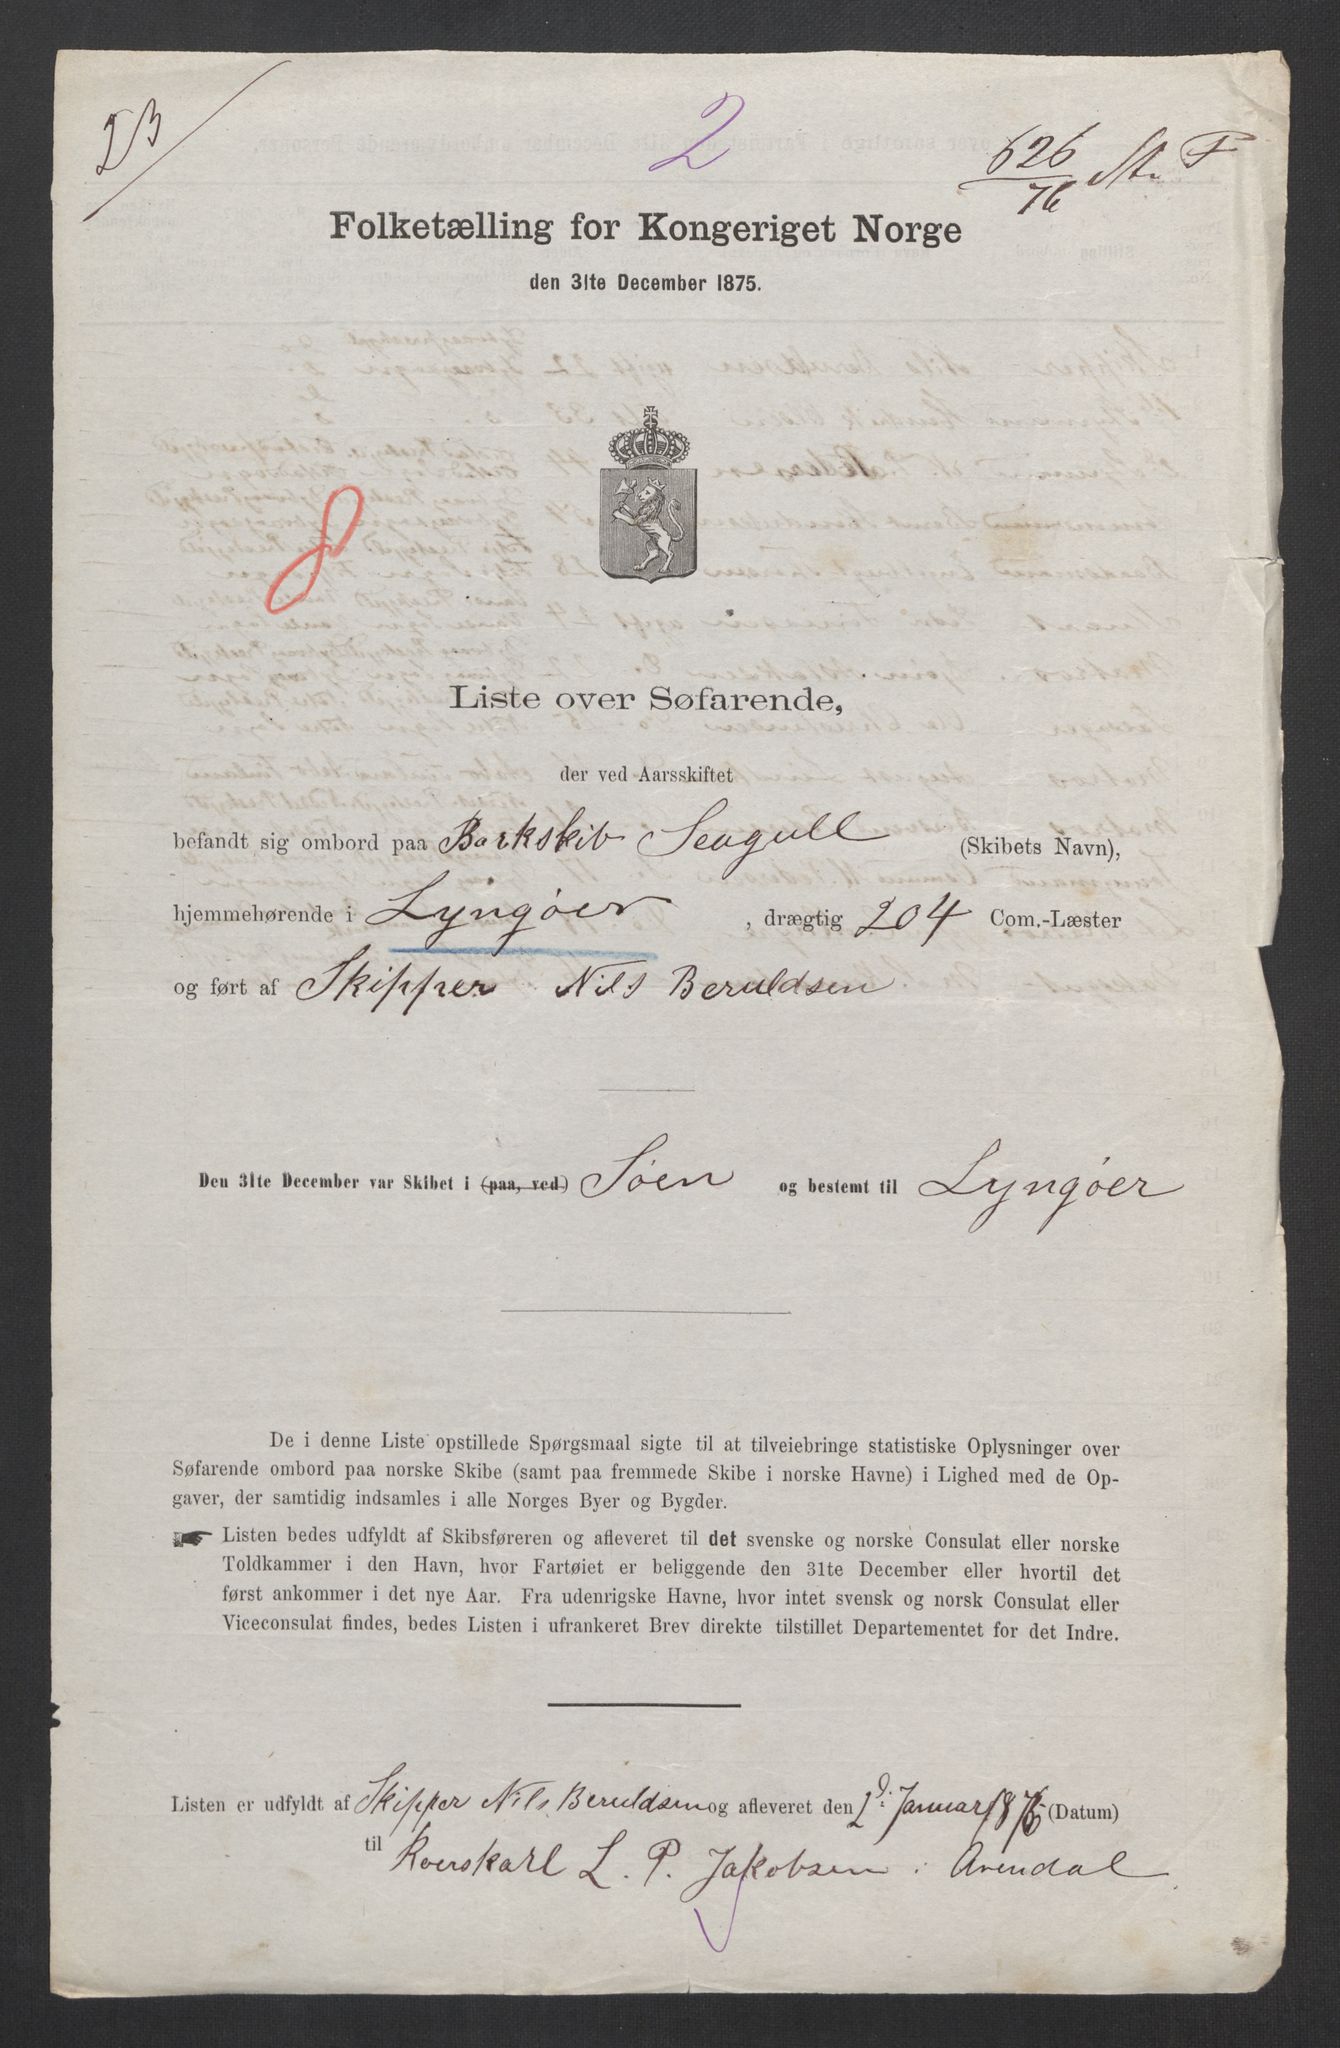 23
2
626
76
Folketælling for Kongeriget Norge
den 31te December 1875.
8
Liste over Søfarende,
der ved Aarsskiftet
befandt sig ombord paa Barkskib Seagull (Skibets Navn),
hjemmehørende i Lyngøer, drægtig 204 Com.-Læster
og ført af Skipper Nils Beruldsen
Den 31te December var Skibet i (paa, ved) Søen og bestemt til Lyngøer
De i denne Liste opstillede Spørgsmaal sigte til at tilveiebringe statistiske Oplysninger over
Søfarende ombord paa norske Skibe (samt paa fremmede Skibe i norske Havne) i Lighed med de Op-
gaver, der samtidig indsamles i alle Norges Byer og Bygder.
Listen bedes udfyldt af Skibsføreren og afleveret til det svenske og norske Consulat eller norske
Toldkammer i den Havn, hvor Fartøiet er beliggende den 31te December eller hvortil det
først ankommer i det nye Aar. Fra udenrigske Havne, hvor intet svensk og norsk Consulat eller
Viceconsulat findes, bedes Listen i ufrankeret Brev direkte tilstillet Departementet for det Indre.
Listen er udfyldt af Skipper Nils Beruldsen og afleveret den 2d: Januar 1876 (Datum)
til Roerskarl L. P. Jakobsen i Arendal